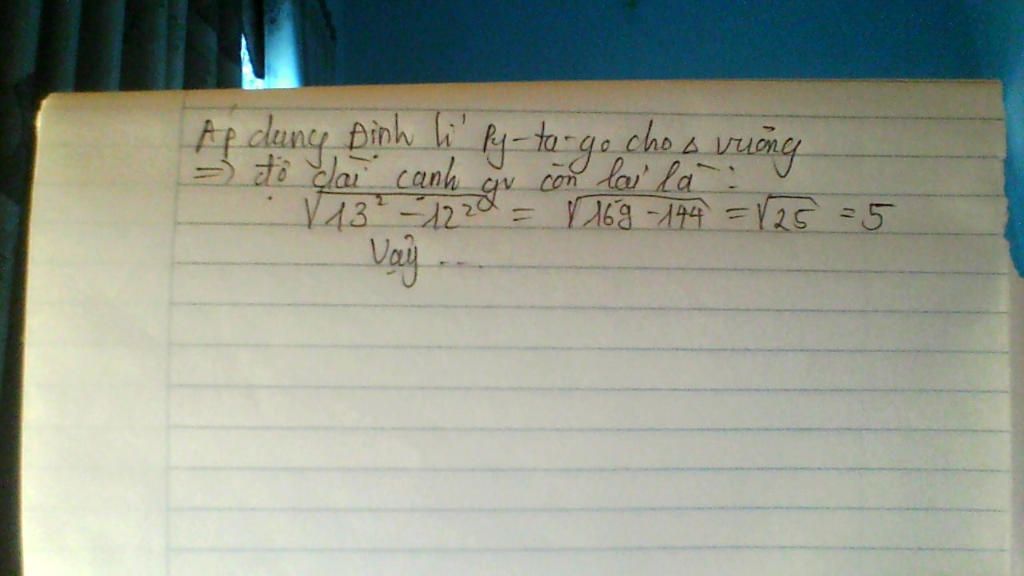 Áp dụng Định lí Py-ta-go cho Δ vuông
=> độ dài cạnh gv còn lại là:
√13² - 12² = √169 - 144 = √25 = 5
Vậy ...